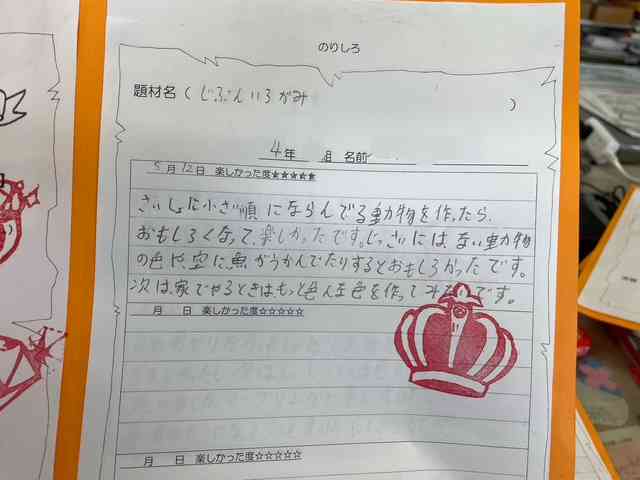 のりしろ
題材名 ( じぶんいろがみ )
4年 組 名前
5月12日 楽しかった度★★★★★
さいしょに小さい順にならんでる動物を作ったら、
おもしろくなって、楽しかったです。じっさいには、ない動物
の色や空に魚がうかんでたりするとおもしろかったです。
次は、家でやるときは、もっと色んな色を作ってみたいです。
月 日 楽しかった度☆☆☆☆☆
月 日 楽しかった度☆☆☆☆☆